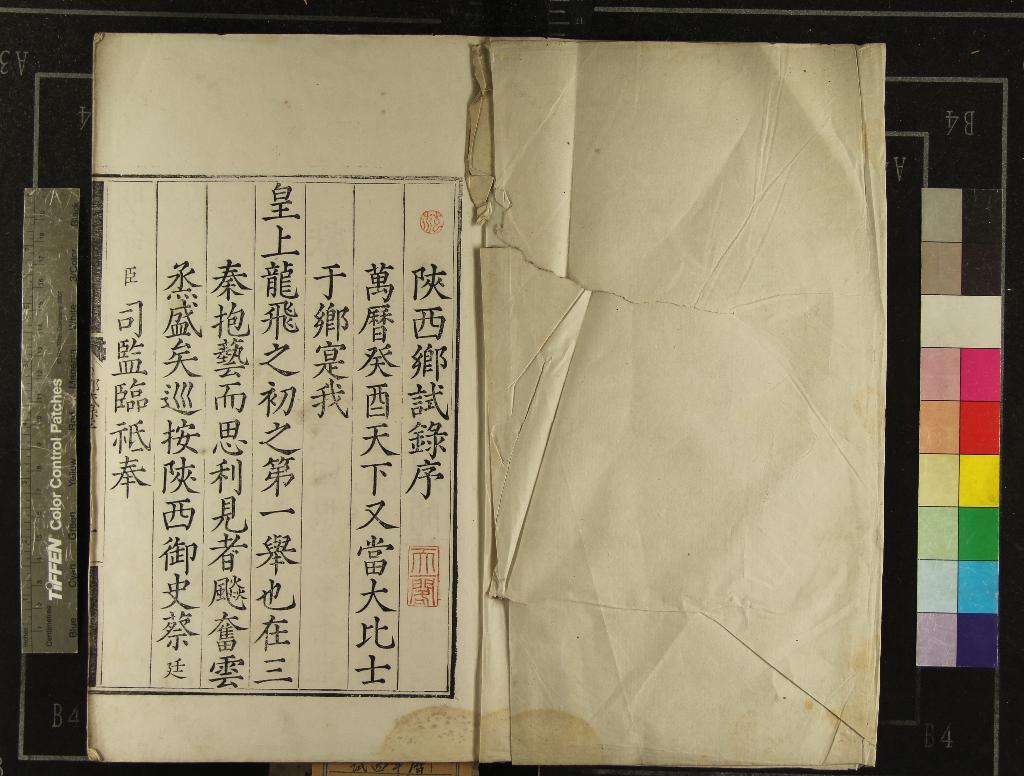 陝西鄉試錄序
萬曆癸酉天下又當大比士
于鄉寔我
皇上龍飛之初之第一舉也在三
秦抱藝而思利見者飈奮雲
烝盛矣巡按陝西御史蔡廷
臣司監臨祗奉
天一閣
TIFFEN Color Control Patches
A3
B4
A4
B4
B4